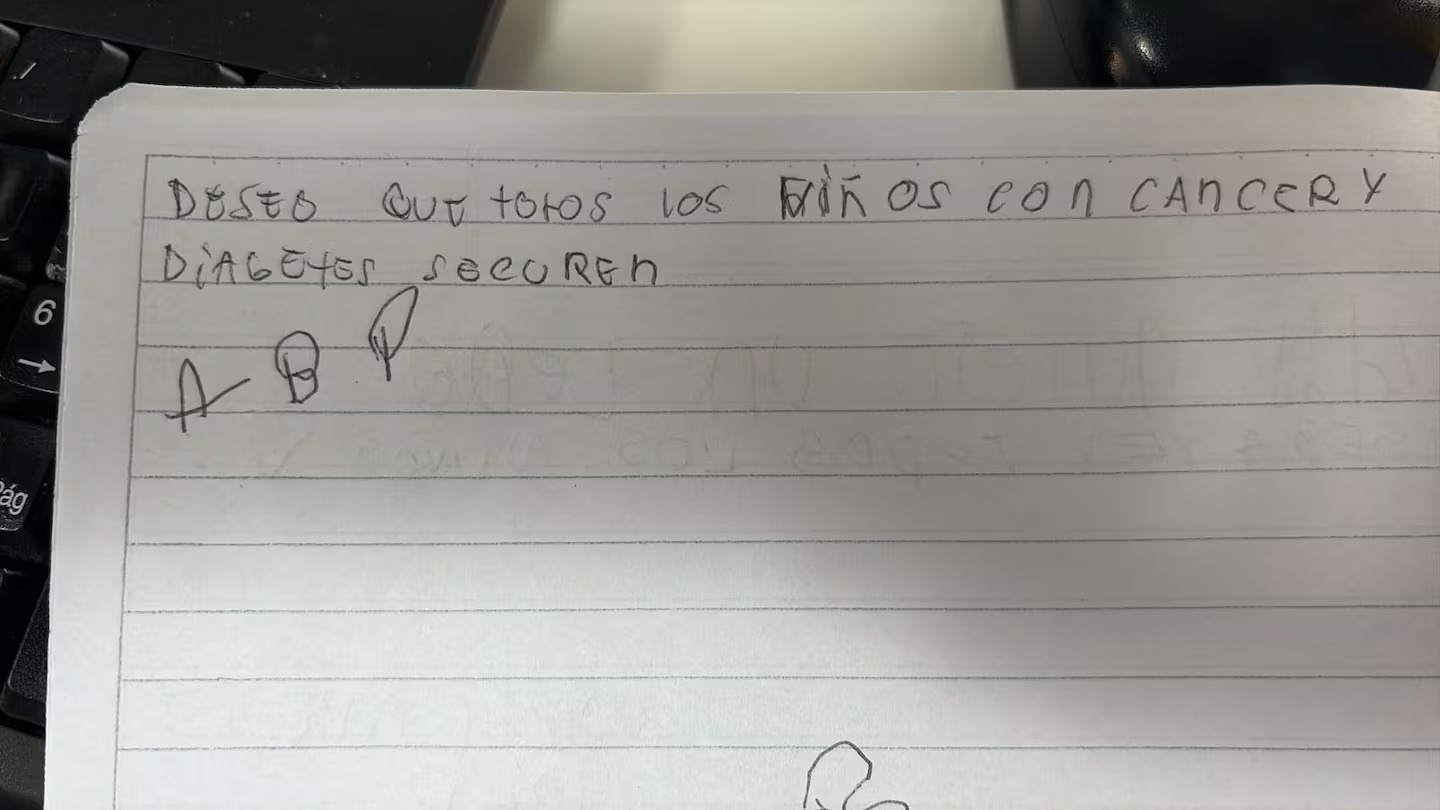 DESEO QUE totos LOS NiÑOS CON CANCER Y
DiAGEtES SECUREN
A B P
6
→
Pág